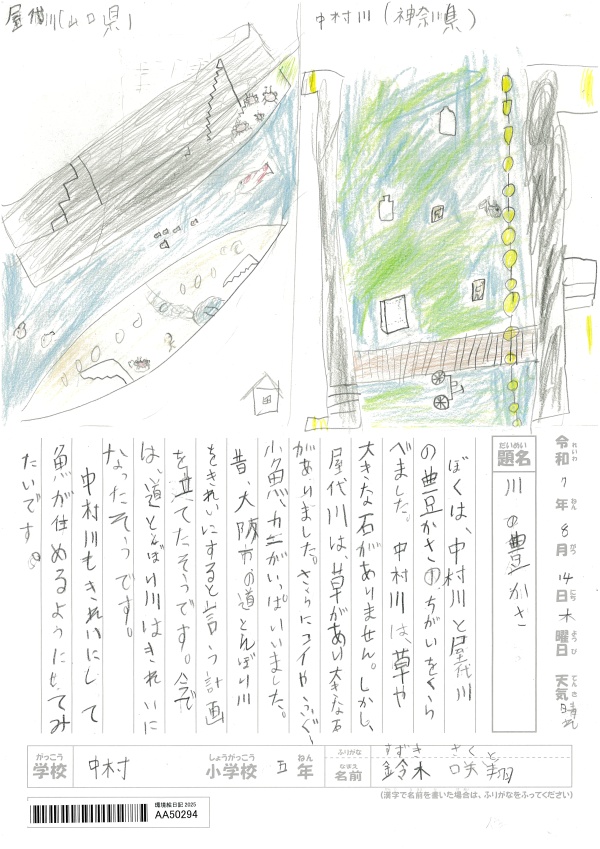 屋代川(山口県)
中村川(神奈川県)
令和7年8月14日木曜日 天気 晴れ
れいわ ねん がつ にち ようび てんき
だいめい
題名
川の豊かさ
ぼくは、中村川と屋代川
の豊かさの ちがいをくら
べました。中村川は、草や
大きな石がありません。しかし、
屋代川は、草があり大きな石
がありました。さらにコイやふぐ、
小魚、カニがいっぱいいました。
昔、大阪市の道とんぼり川
をきれいにすると言う計画
を立てたそうです。今で
は、道とんぼり川はきれいに
なったそうです。
中村川もきれいにして
魚が住めるようにしてみ
たいです。
がっこう しょうがっこう ねん
学校 中村 小学校 五年
ふりがな すずき さくと
なまえ
名前 鈴木 咲翔
(漢字で名前を書いた場合は、ふりがなをふってください)
環境絵日記 2025
AA50294